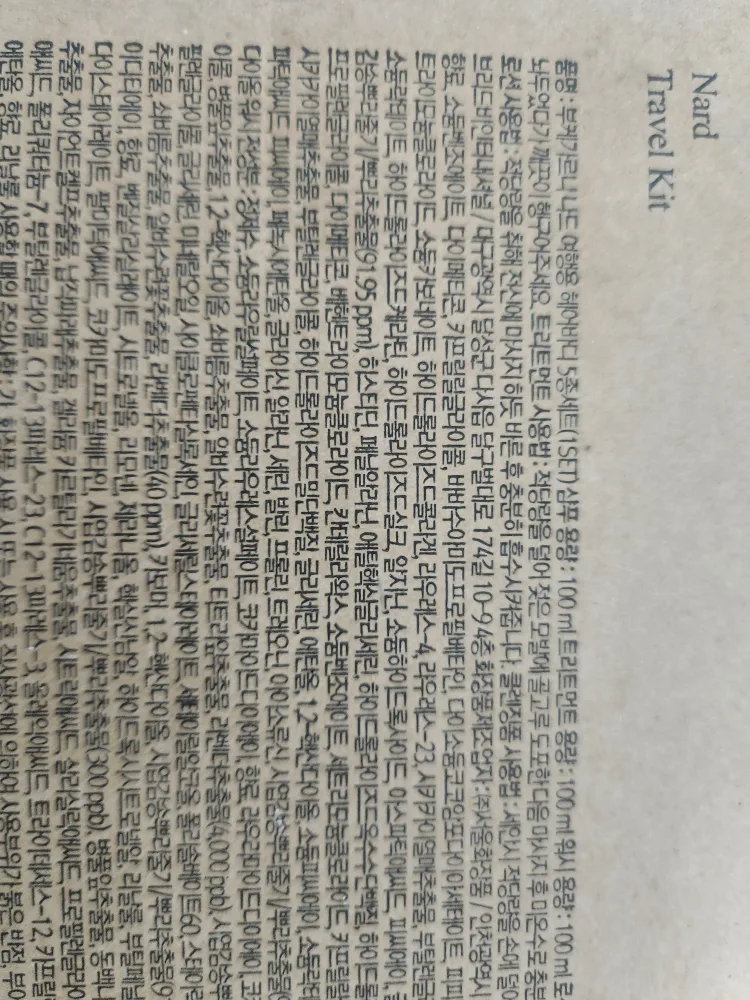 Nard
Travel Kit
품명 : 부케가르니 나드 여행용 헤어바디 5종세트(1SET) 샴푸 용량 : 100 ml 트리트먼트 용량 : 100 ml 워시 용량 : 100 ml 로
놔두었다가 깨끗이 헹구어주세요. 트리트먼트 사용법 : 적당량을 덜어 젖은 모발에 골고루 도포한 다음 마사지 후 미온수로 충분
로션 사용법 : 적당량을 취해 전신에 마사지 하듯 바른 후 충분히 흡수시켜줍니다. 클렌징폼 사용법 : 세안 시 적당량을 손에 덜어
인터내셔널 / 대구광역시 달성군 다사읍 달구벌대로 174길 10-9 4층 화장품제조업자 : ㈜서울화장품 / 인천광역시
향료, 소듐벤조에이트, 다이메티콘, 카프릴릴글라이콜, 바바수아미도프로필베타인, 다이소듐코코암포다이아세테이트, 피피
트라이모늄클로라이드, 소듐카보네이트, 하이드롤라이즈드콜라겐, 라우레스-4, 라우레스-23, 사카카이열매추출물, 부틸렌글
소듐락테이트, 하이드롤라이즈드케라틴, 하이드롤라이즈드실크, 알지닌, 소듐하이드록사이드, 아스파틱애씨드, 피씨에이, 글
감송뿌리줄기/뿌리추출물(91.95 ppm), 히스티딘, 페닐알라닌, 에틸헥실글리세린, 하이드롤라이즈드옥수수단백질, 하이드롤
프로필렌글라이콜, 다이메티콘, 베헨트라이모늄클로라이드, 칸데릴라왁스, 소듐벤조에이트, 세트리모늄클로라이드, 카프릴릴
사카카이열매추출물, 부틸렌글라이콜, 하이드롤라이즈드밀단백질, 글리세린, 에탄올, 1,2-헥산다이올, 소듐피씨에이, 소듐락테
파틱애씨드, 피씨에이, 페녹시에탄올, 글라이신, 알라닌, 세린, 발린, 프롤린, 트레오닌, 아이소류신, 시엽감송뿌리줄기/뿌리추출물(
다이올 워시 전성분 : 정제수, 소듐라우릴설페이트, 소듐라우레스설페이트, 코카마이드다이에이, 향료, 라우라마이드다이에이, 코
이올, 병풀잎추출물, 1,2-헥산다이올, 쇠비름추출물, 알비수련꽃추출물, 티트리잎추출물, 라벤더추출물(4,000 ppb), 시엽감송뿌
필렌글라이콜, 글리세린, 미네랄오일, 사이클로펜타실록세인, 글리세릴스테아레이트, 세테아릴알코올, 폴리솔베이트60, 스테아릭
추출물, 쇠비름추출물, 알비수련꽃추출물, 라벤더추출물(40 ppm), 카보머, 1,2-헥산다이올, 시엽감송뿌리줄기/뿌리추출물(9
이디티에이, 향료, 벤질살리실레이트, 시트로넬올, 리모넨, 제라니올, 헥실신남알, 하이드록시시트로넬알, 리날룰, 부틸페닐
다이스테아레이트, 팔미틱애씨드, 코카미도프로필베타인, 시엽감송뿌리줄기/뿌리추출물(300 ppb), 병풀잎추출물, 동백나
추출물, 자이언트켈프추출물, 넓패추출물, 겔리듐 카르틸라기네움추출물, 시트릭애씨드, 살리실릭애씨드, 프로필렌글라이
애씨드, 폴리쿼터늄-7, 부틸렌글라이콜, C12-13파레스-23, C12-13파레스-3, 올레익애씨드, 트라이데세스-12, 카프릴
에탄올, 향료, 리날룰